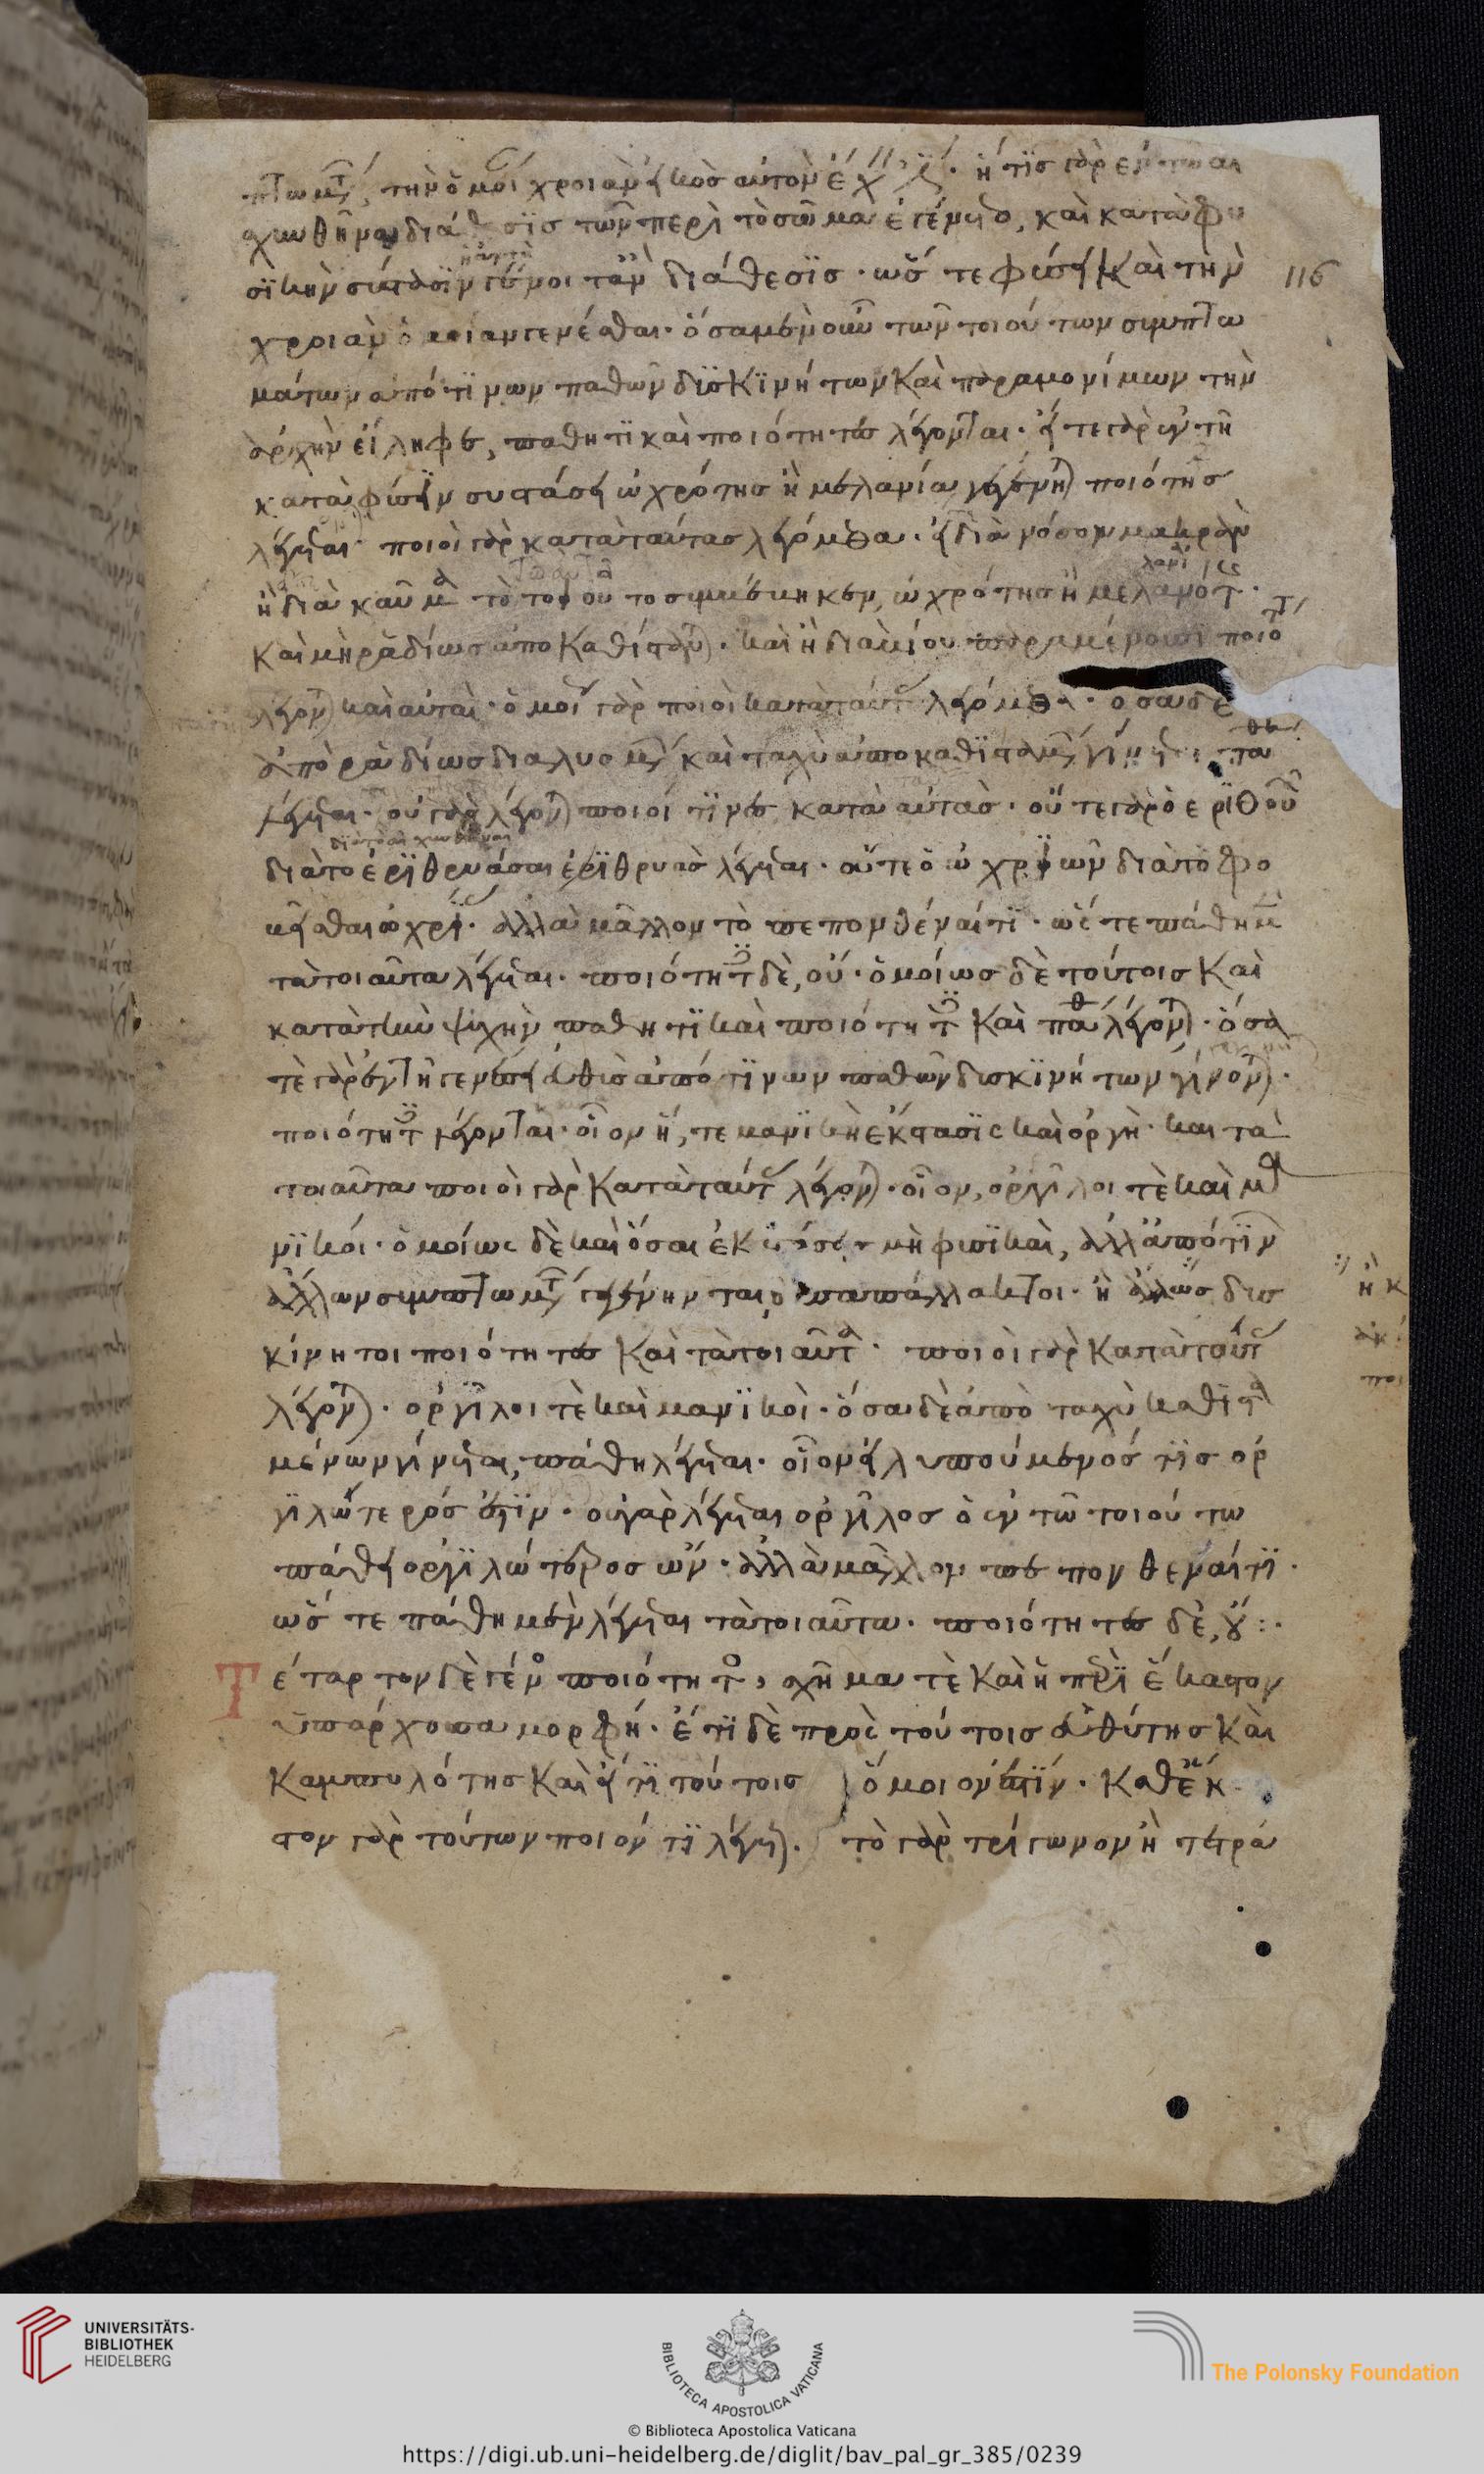 πτωμάτων, τὴν ὁμοίαν χροιὰν εἰκὸς αὐτὸν ἔχειν. ἥτις γὰρ ἐν τῷ αἰ
σχυνθῆναι διάθεσϊς τῶν περὶ τὸ σῶμα ἐγένετο, καὶ κατὰ φυ
σϊκὴν σύστασϊν γένοιτ' ἂν διάθεσϊς. ὥστε φύσει καὶ τὴν
116
χροιὰν ὁμοίαν γενέσθαι. ὅσα μὲν οὖν τῶν τοιούτων συμπτω
μάτων ἀπό τϊνων παθῶν δυσκϊνήτων καὶ παραμονίμων τὴν
ἀρχὴν εἴληφε, παθητϊκαὶ ποιότητες λέγονται. εἴτε γὰρ ἐν τῇ
κατὰ φύσϊν συστάσει ὠχρότης ἢ μελανία γεγένηται ποιότης
λέγεται. ποιοὶ γὰρ κατὰ ταύτας λεγόμεθα. εἰ διὰ νόσον μακρὰν
ἢ διὰ καῦμα τὸ τοιοῦτο συμβέβηκεν, ὠχρότης ἢ μελανότης.
καὶ μὴ ραδίως ἀποκαθίσταται. καὶ ἢ διὰ βίου παραμένουσι ποιότητες
λέγονται καὶ αὐταί. ὁμοίως γὰρ ποιοὶ κατὰ ταύτας λεγόμεθα. ὅσα δὲ
ἀπὸ ραδίως διαλυομένων καὶ ταχὺ ἀποκαθϊσταμένων γίνεται πάθη
λέγεται. οὐ γὰρ λέγονται ποιοί τϊνες κατὰ αὐτάς. οὔτε γὰρ ὁ ερϊθρῶν
διὰ τὸ αἰσχυνθῆναι
διὰ τὸ ἐρϊθρυάσαι ἐρϊθρυας λέγεται. οὔτε ὁ ὠχρϊῶν διὰ τὸ φο
βεῖσθαι ὠχρϊας. ἀλλὰ μᾶλλον τὸ πεπονθέναι τϊ. ὥστε πάθη μὲν
τὰ τοιαῦτα λέγεται. ποιότητες δὲ, οὔ. ὁμοίως δὲ τούτοις καὶ
κατὰ τὴν ψυχὴν παθητϊκαὶ ποιότητες καὶ πάθη λέγονται. ὅσα
τὲ γὰρ ἐν τῇ γενέσει εὐθὺς ἀπό τϊνων παθῶν δυσκϊνήτων γίνονται.
ποιότητες λέγονται. οἷον ἥ, τε μανϊκὴ ἔκστασϊς καὶ ὀργὴ. καὶ τὰ
τοιαῦτα ποιοὶ γὰρ κατὰ ταύτας λέγονται. οἷον, ὀργίλοι τὲ καὶ μα
νϊκοί. ὁμοίως δὲ καὶ ὅσαι ἐκστάσεις μὴ φυσϊκαὶ, ἀλλ' ἀπό τϊν
ἄλλων συμπτωμάτων γεγένηνται δυσαπάλλακτοι. ἢ ὅλως δυσ
κίνητοι ποιότητες καὶ τὰ τοιαῦτα. ποιοὶ γὰρ κατὰ ταύτας
λέγονται. ὀργῖλοι τὲ καὶ μανϊκοί. ὅσα δὲ ἀπὸ ταχὺ καθϊστα
μένων γίνεται, πάθη λέγεται. οἷον εἰ λυπούμενός τϊς ορ
γϊλώτερός ἐστϊν. οὐ γὰρ λέγεται ὀργῖλος ὁ ἐν τῷ τοιούτω
πάθει οργϊλώτερος ὤν. ἀλλὰ μᾶλλον πεπονθέναι τϊ.
ὥστε πάθη μὲν λέγεται τὰ τοιαῦτα. ποιότητες δὲ, οὔ :.
Τέταρτον δὲ γένος ποιότητος, σχῆμα τὲ καὶ ἡ περϊ ἕκαστον
ὑπάρχουσα μορφή. ἔτϊ δὲ πρὸς τούτοις εὐθύτης καὶ
καμπυλότης καὶ εἴ τϊ τούτοις ὅμοιον ἐστϊν. καθ' ἕκα
στον γὰρ τούτων ποιόν τϊ λέγεται. τὸ γὰρ τρίγωνον ἢ τετρά
UNIVERSITÄTS-
BIBLIOTHEK
HEIDELBERG
BIBLIOTECA APOSTOLICA VATICANA
The Polonsky Foundation
© Biblioteca Apostolica Vaticana
https://digi.ub.uni-heidelberg.de/diglit/bav_pal_gr_385/0239